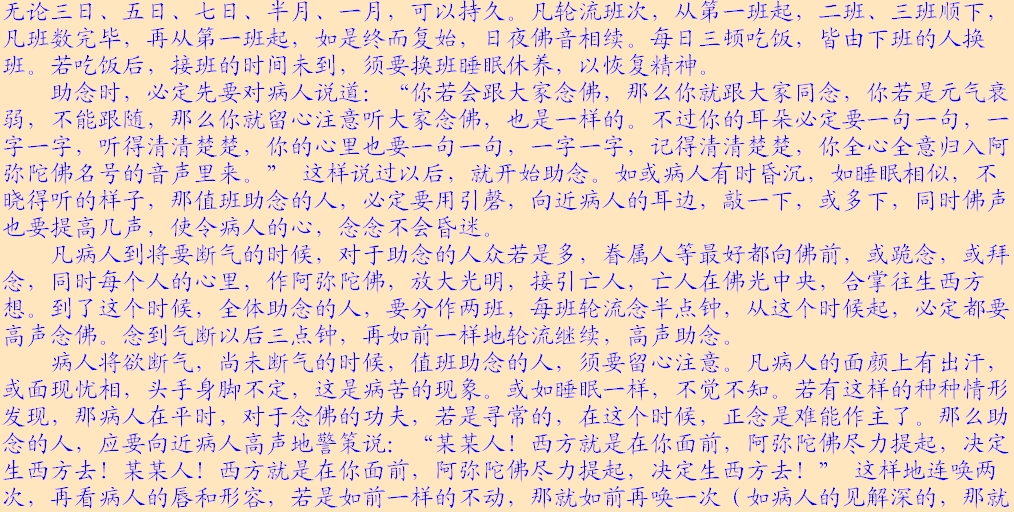 无论三日、五日、七日、半月、一月，可以持久。凡轮流班次，从第一班起，二班、三班顺下，
凡班数完毕，再从第一班起，如是终而复始，日夜佛音相续。每日三顿吃饭，皆由下班的人换
班。若吃饭后，接班的时间未到，须要换班睡眠休养，以恢复精神。
助念时，必定先要对病人说道：“你若会跟大家念佛，那么你就跟大家同念，你若是元气衰
弱，不能跟随，那么你就留心注意听大家念佛，也是一样的。不过你的耳朵必定要一句一句，一
字一字，听得清清楚楚，你的心里也要一句一句，一字一字，记得清清楚楚，你全心全意归入阿
弥陀佛名号的音声里来。” 这样说过以后，就开始助念。如或病人有时昏沉，如睡眠相似，不
晓得听的样子，那值班助念的人，必定要用引磬，向近病人的耳边，敲一下，或多下，同时佛声
也要提高几声，使令病人的心，念念不会昏迷。
凡病人到将要断气的时候，对于助念的人众若是多，眷属人等最好都向佛前，或跪念，或拜
念，同时每个人的心里，作阿弥陀佛，放大光明，接引亡人，亡人在佛光中央，合掌往生西方
想。到了这个时候，全体助念的人，要分作两班，每班轮流念半点钟，从这个时候起，必定都要
高声念佛。念到气断以后三点钟，再如前一样地轮流继续，高声助念。
病人将欲断气，尚未断气的时候，值班助念的人，须要留心注意。凡病人的面颜上有出汗，
或面现忧相，头手身脚不定，这是病苦的现象。或如睡眠一样，不觉不知。若有这样的种种情形
发现，那病人在平时，对于念佛的功夫，若是寻常的，在这个时候，正念是难能作主了。那么助
念的人，应要向近病人高声地警策说：“某某人！西方就是在你面前，阿弥陀佛尽力提起，决定
生西方去！某某人！西方就是在你面前，阿弥陀佛尽力提起，决定生西方去！” 这样地连唤两
次，再看病人的唇和形容，若是如前一样的不动，那就如前再唤一次（如病人的见解深的，那就